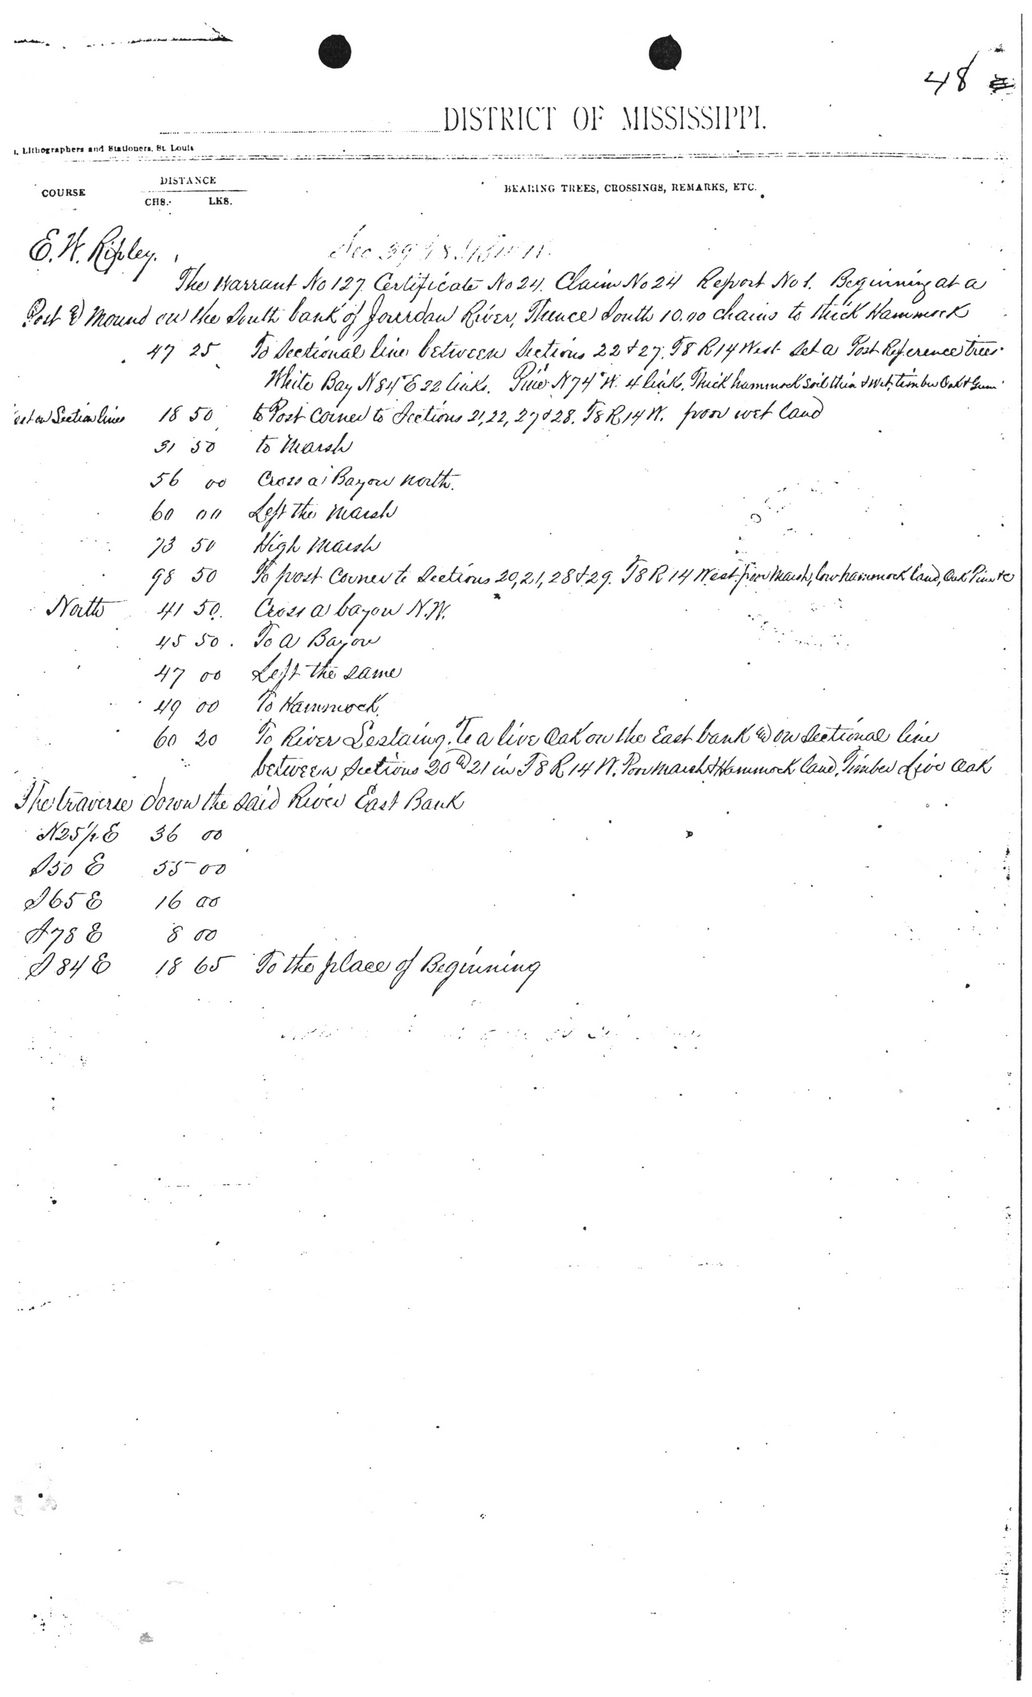 48
DISTRICT OF MISSISSIPPI.
, Lithographers and Stationers, St. Louis
COURSE DISTANCE BEARING TREES, CROSSINGS, REMARKS, ETC.
CHS. LKS.
E. W. Ripley. Sec 39
The Warrant No 127 Certificate No 24. Claim No 24 Report No 1. Beginning at a
Post & Mound on the South bank of Jourdan River, Thence South 10.00 chains to thick Hammock
47 25 To Sectional line between Sections 22 & 27. T8 R14 West Set a Post Reference trees
White Bay N84°E 22 links. Pine N74°W. 4 link. Thick hammock soil thin & wet, timber Oak & Gum
on Section lines 18 50 to Post Corner to Sections 21, 22, 27 & 28. T8 R14 W. poor wet land
31 50 to Marsh
56 00 Cross a Bayou north.
60 00 Left the Marsh
73 50 High Marsh
98 50 To post Corner to Sections 20, 21, 28 & 29. T8 R14 West poor Marsh, low hammock land, Oak Pine &c
North 41 50. Cross a bayou N.W.
45 50. To a Bayou
47 00 Left the same
49 00 To Hammock
60 20 To River To a live Oak on the East bank & on Sectional line
between Sections 20 & 21 in T8 R14 W. Poor Marsh & Hammock land, Timber Live Oak
The traverse down the said River East Bank
N25½ E 36 00
S50 E 55 00
S65 E 16 00
S78 E 8 00
S84 E 18 65 To the place of Beginning